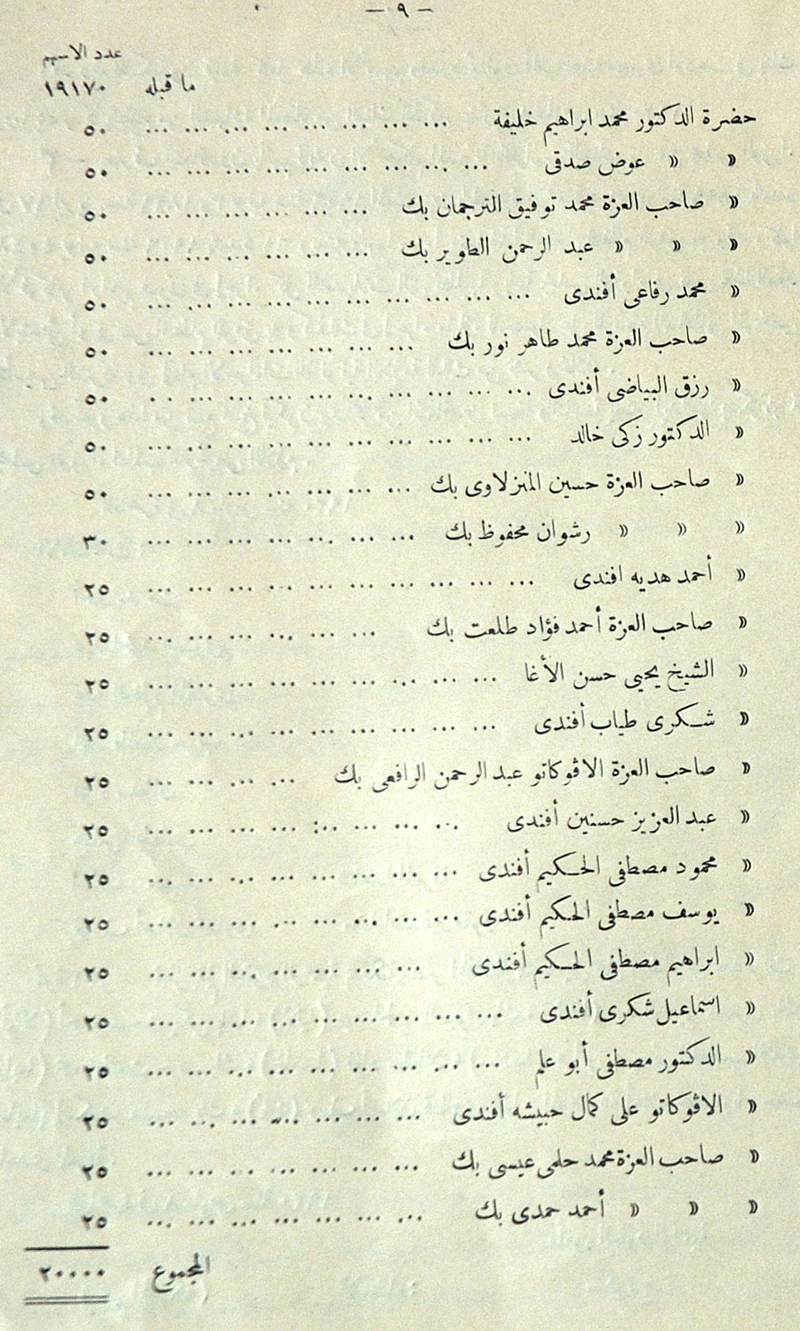 — ٩ —
عدد الاسهم
ما قبله ١٩١٧٠
حضرة الدكتور محمد ابراهيم خليفة ... ... ... ... ... ... ... ... ٥٠
» » عوض صدقى ... ... ... ... ... ... ... ... ... ٥٠
» صاحب العزة محمد توفيق الترجمان بك ... ... ... ... ... ... ٥٠
» » » عبد الرحمن الطوير بك ... ... ... ... ... ... ٥٠
» محمد رفاعى أفندى ... ... ... ... ... ... ... ... ... ... ٥٠
» صاحب العزة محمد طاهر نور بك ... ... ... ... ... ... ... ٥٠
» رزق البياضى أفندى ... ... ... ... ... ... ... ... ... ... ٥٠
» الدكتور زكى خالد ... ... ... ... ... ... ... ... ... ... ٥٠
» صاحب العزة حسين المنزلاوى بك ... ... ... ... ... ... ... ٥٠
» » » رشوان محفوظ بك ... ... ... ... ... ... ... ٣٠
» أحمد هديه افندى ... ... ... ... ... ... ... ... ... ... ٢٥
» صاحب العزة أحمد فؤاد طلعت بك ... ... ... ... ... ... ٢٥
» الشيخ يحيى حسن الأغا ... ... ... ... ... ... ... ... ... ٢٥
» شكرى طياب أفندى ... ... ... ... ... ... ... ... ... ٢٥
» صاحب العزة الاڤوكاتو عبد الرحمن الرافعى بك ... ... ... ... ٢٥
» عبد العزيز حسنين أفندى ... ... ... ... ... ... ... ... ٢٥
» محمود مصطفى الحكيم أفندى ... ... ... ... ... ... ... ... ٢٥
» يوسف مصطفى الحكيم أفندى ... ... ... ... ... ... ... ... ٢٥
» ابراهيم مصطفى الحكيم أفندى ... ... ... ... ... ... ... ٢٥
» اسماعيل شكرى أفندى ... ... ... ... ... ... ... ... ... ٢٥
» الدكتور مصطفى أبو علم ... ... ... ... ... ... ... ... ... ٢٥
» الاڤوكاتو على كمال حبيشه أفندى ... ... ... ... ... ... ... ٢٥
» صاحب العزة محمد حلمى عيسى بك ... ... ... ... ... ... ... ٢٥
» » » أحمد حمدى بك ... ... ... ... ... ... ... ٢٥
المجموع ٢٠٠٠٠